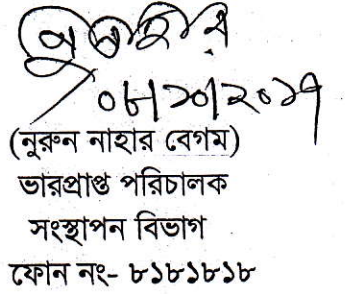 ০৮/১০/২০১৭
(নুরুন নাহার বেগম)
ভারপ্রাপ্ত পরিচালক
সংস্থাপন বিভাগ
ফোন নং- ৮১৮১৮১৮